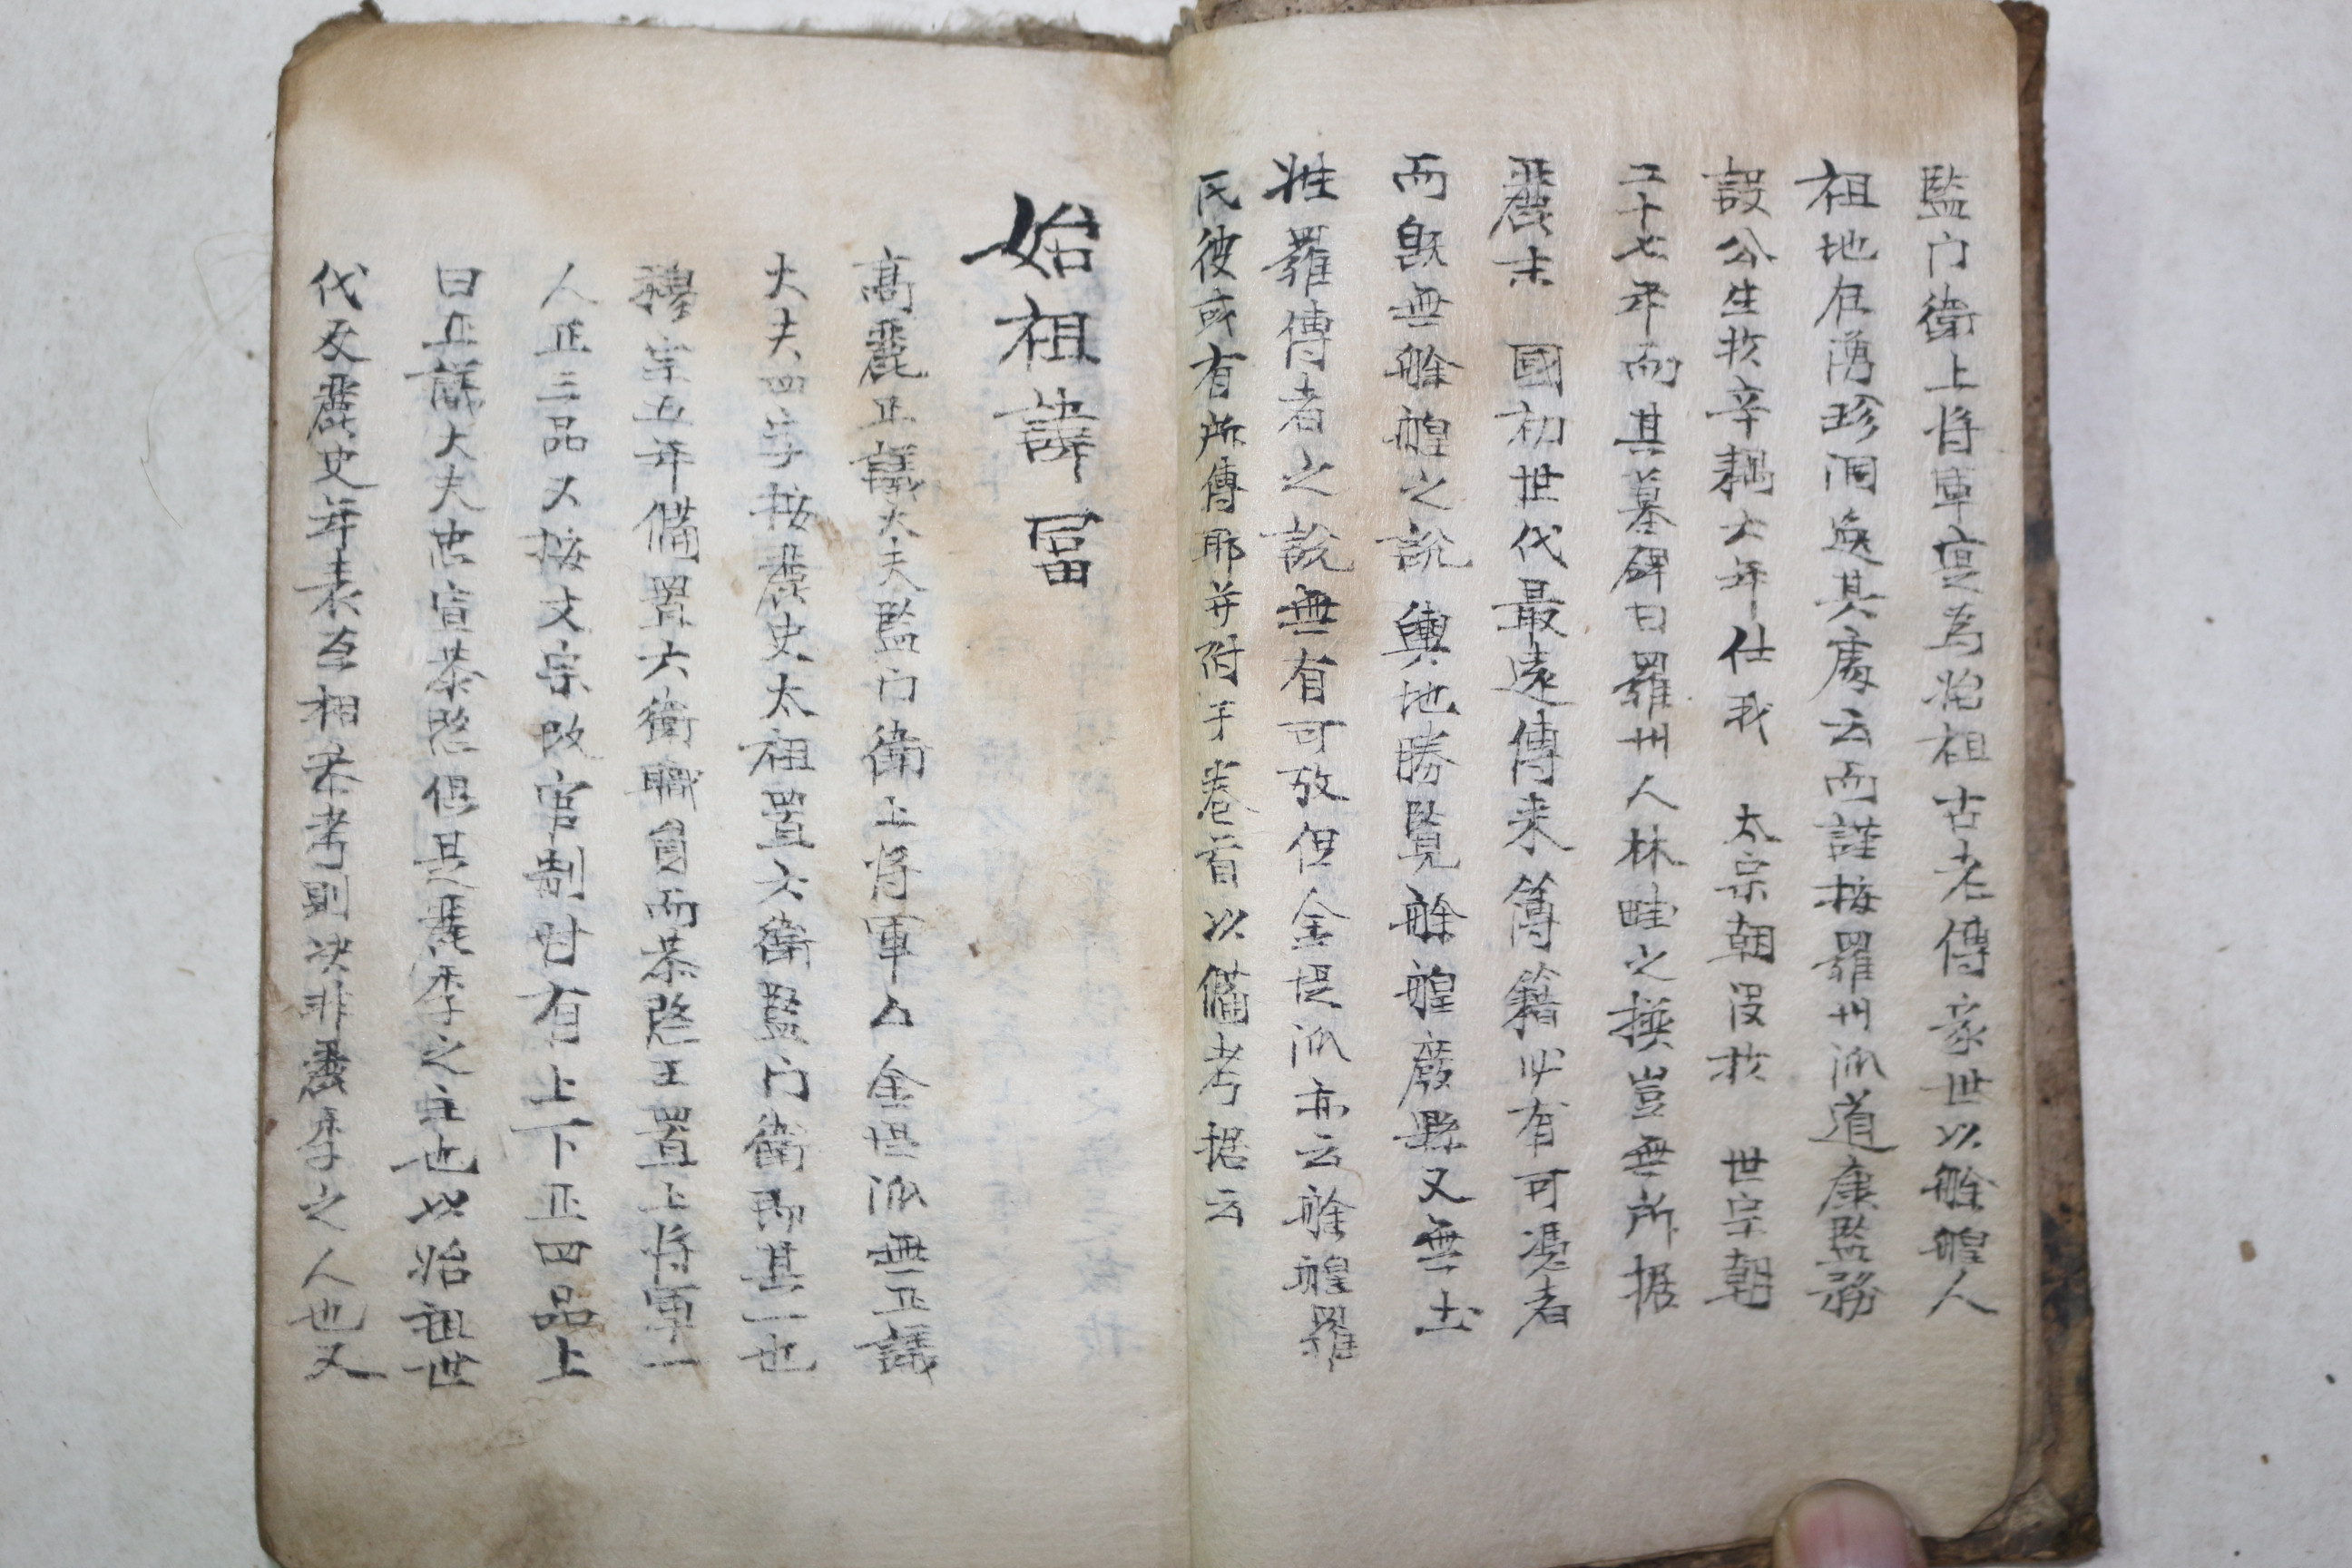 監門衛上將軍寔爲始祖古老傳家世以艅艎人
祖地在湧珍洞逸其處云而謹按羅州派道康監務
設公生於辛耦六年仕我 太宗朝沒於 世宗朝
二十七年而其墓碑曰羅州人林畦之撰豈無所据
麗末 國初世代最遠傳来簿籍必有可憑者
而旣無艅艎之說輿地勝覽艅艎廢縣又無土
姓羅傳者之說無有可攷但金堤派亦云艅艎羅
氏彼或有所傳耶并附于卷首以備考据云
始祖諱冨
高麗正議大夫監門衛上將軍△金堤派無正議
大夫四字按麗史太祖置六衛監門衛即其一也
穆宗五年備置六衛職員而恭愍王置上將軍一
人正三品又按文宗改官制時有上下正四品上
曰正議大夫忠宣恭愍俱是麗季之主也以始祖世
代及麗史年表互相叅考則决非麗季之人也又